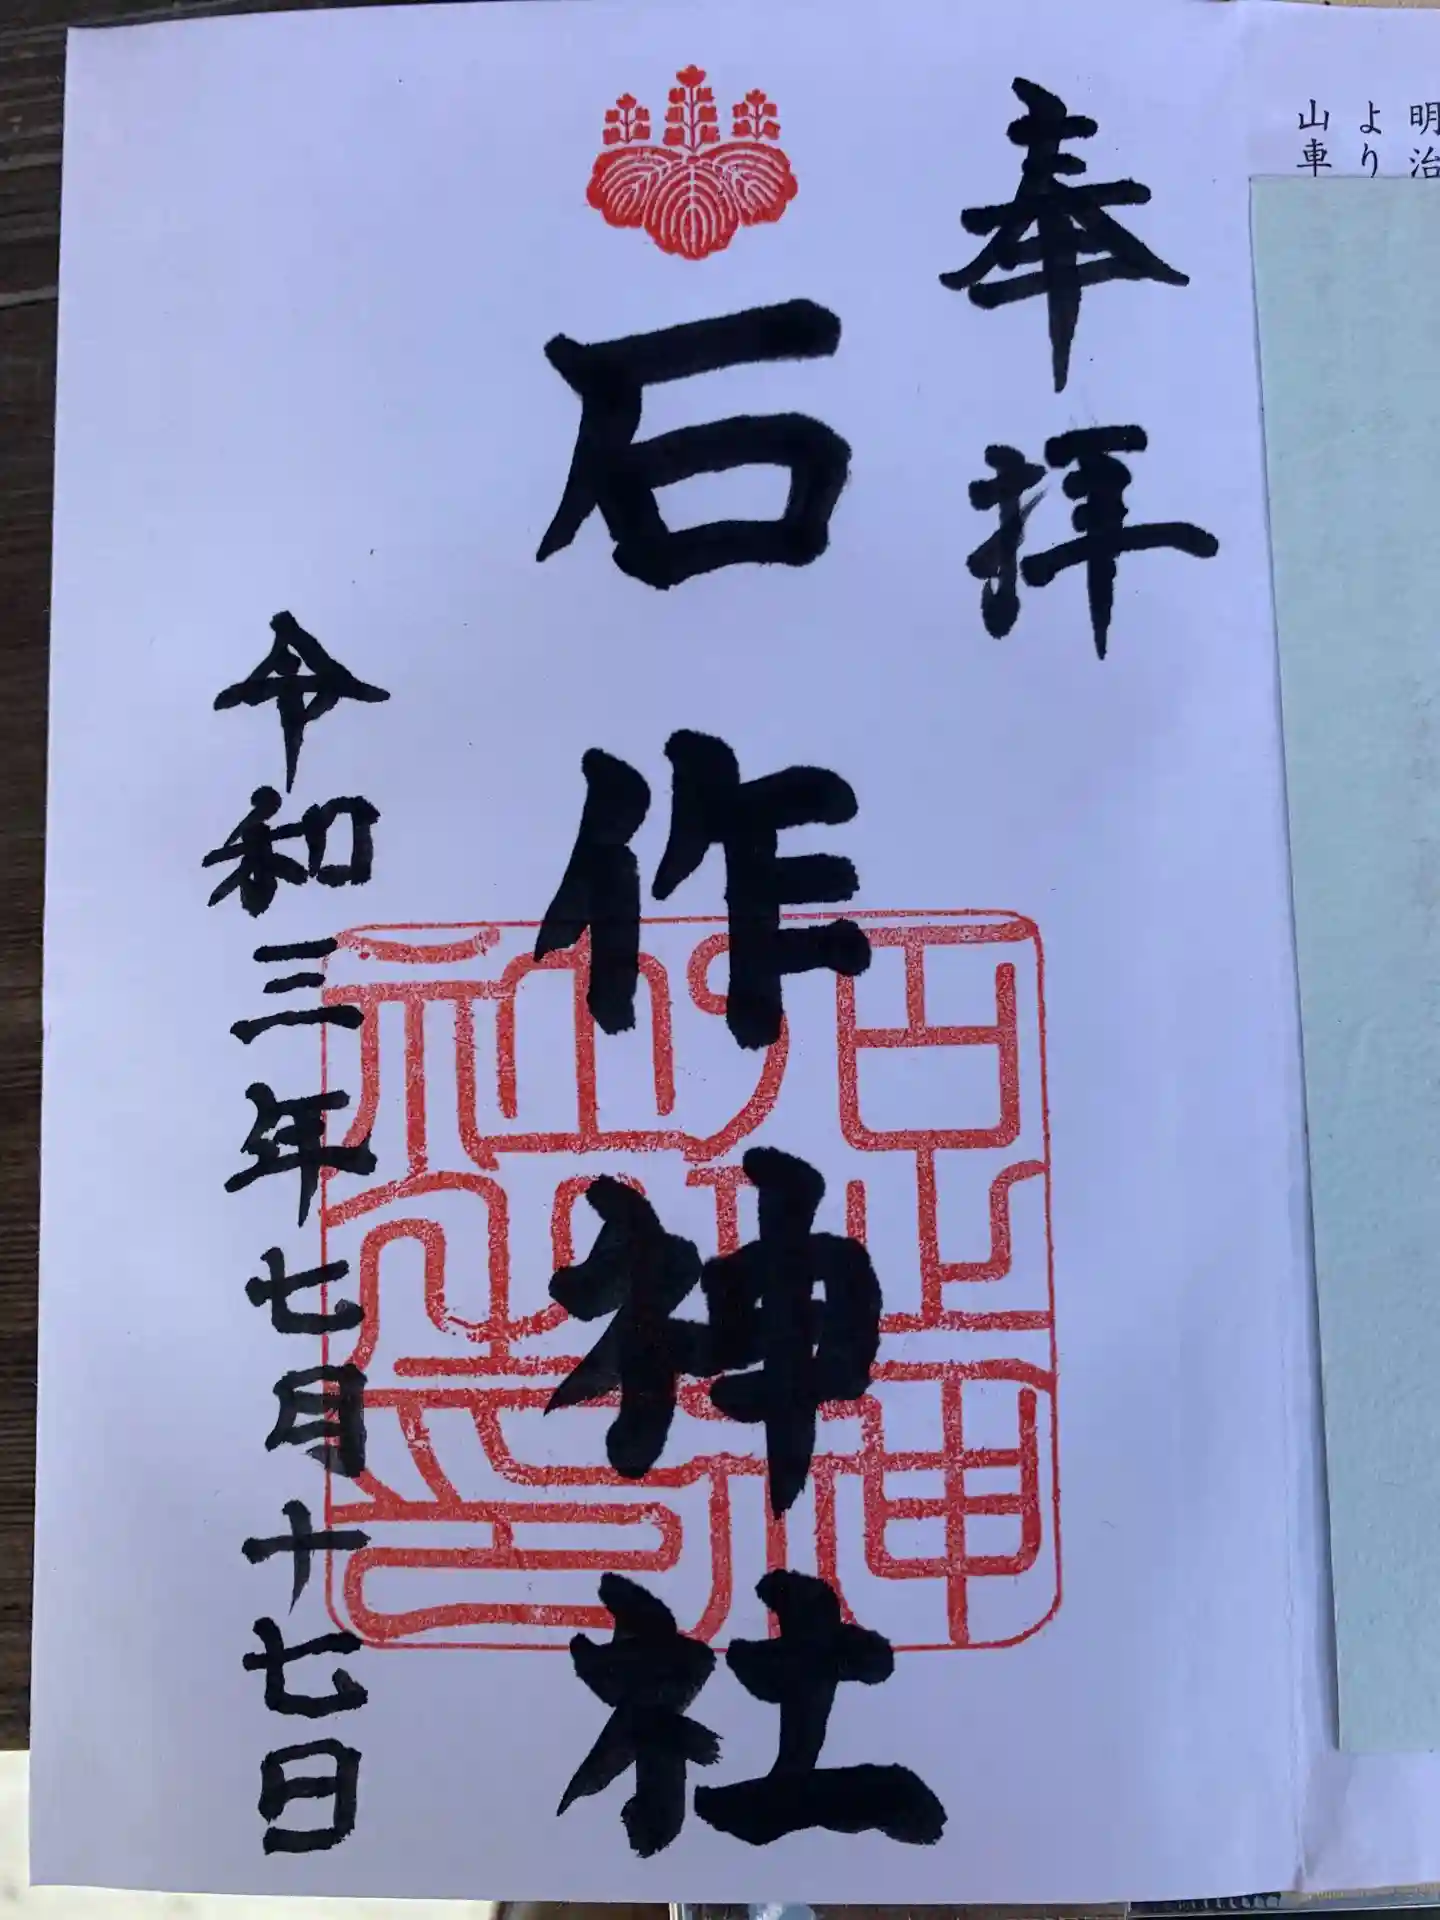 明治
より
山車
奉拝
石作神社
令和三年七月十七日